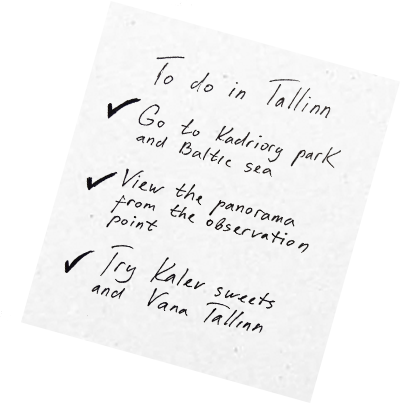 To do in Tallinn
✔ Go to Kadriorg park
and Baltic sea
✔ View the panorama
from the observation
point
✔ Try Kalev sweets
and Vana Tallinn